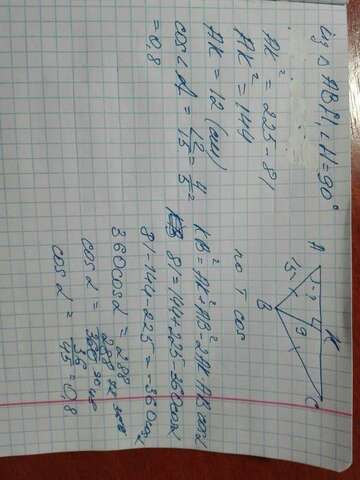 Из △ ABH, ∠H=90°
AK² = 225-81
AK² = 144
AK = 12 (см)
cos∠A = 12/15 = 4/5 =
= 0,8
A K C
? 4
15 9
B
по Т cos
KB² = AK²+AB²-2AK·AB cosα
81 = 144+225-360cosα
81-144-225 = -360cosα
360cosα = 288
cosα = 288/360
cosα = 36/45 = 0,8